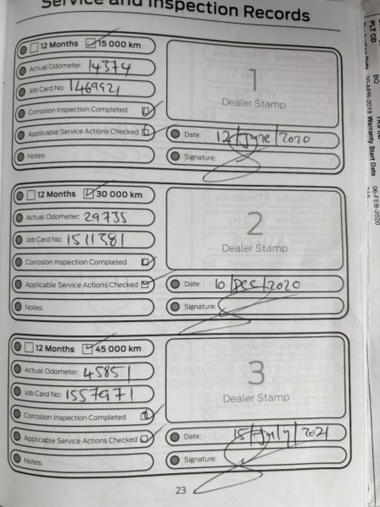 Service and Inspection Records
12 Months 15 000 km
Actual Odometer: 14374
Job Card No: 1469921
Corrosion Inspection Completed
Applicable Service Actions Checked
Notes:
1
Dealer Stamp
Date: 12/June/2020
Signature:
12 Months 30 000 km
Actual Odometer: 29735
Job Card No: 1511381
Corrosion Inspection Completed
Applicable Service Actions Checked
Notes:
2
Dealer Stamp
Date: 10/Dec/2020
Signature:
12 Months 45 000 km
Actual Odometer: 45851
Job Card No: 1557971
Corrosion Inspection Completed
Applicable Service Actions Checked
Notes:
3
Dealer Stamp
Date: 15/July/2021
Signature:
23
PLT CD
Warranty Start Date 06-FEB-2020